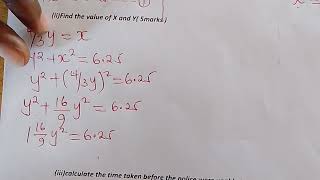 (ii)Find the value of X and Y( 5marks )
/3y = x
y² + x² = 6.25
y² + (4/3y)² = 6.25
y² + 16/9 y² = 6.25
1 16/9 y² = 6.25
(iii)calculate the time taken before the police